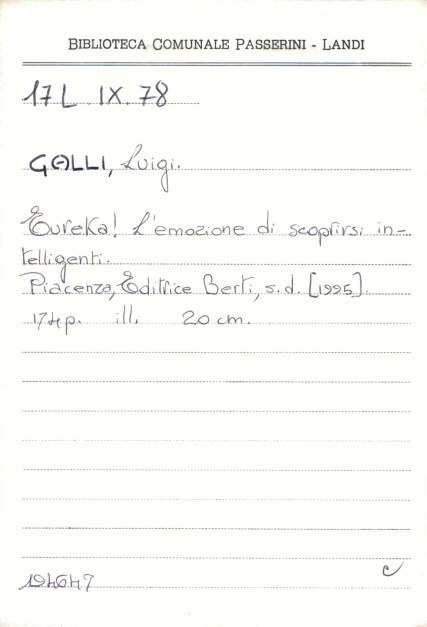 BIBLIOTECA COMUNALE PASSERINI - LANDI
17 L. IX. 78
GALLI, Luigi.
Eureka! L'emozione di scoprirsi in-
telligenti.
Piacenza, Editrice Berti, s.d. [1995].
174p. ill. 20 cm.
c
194647